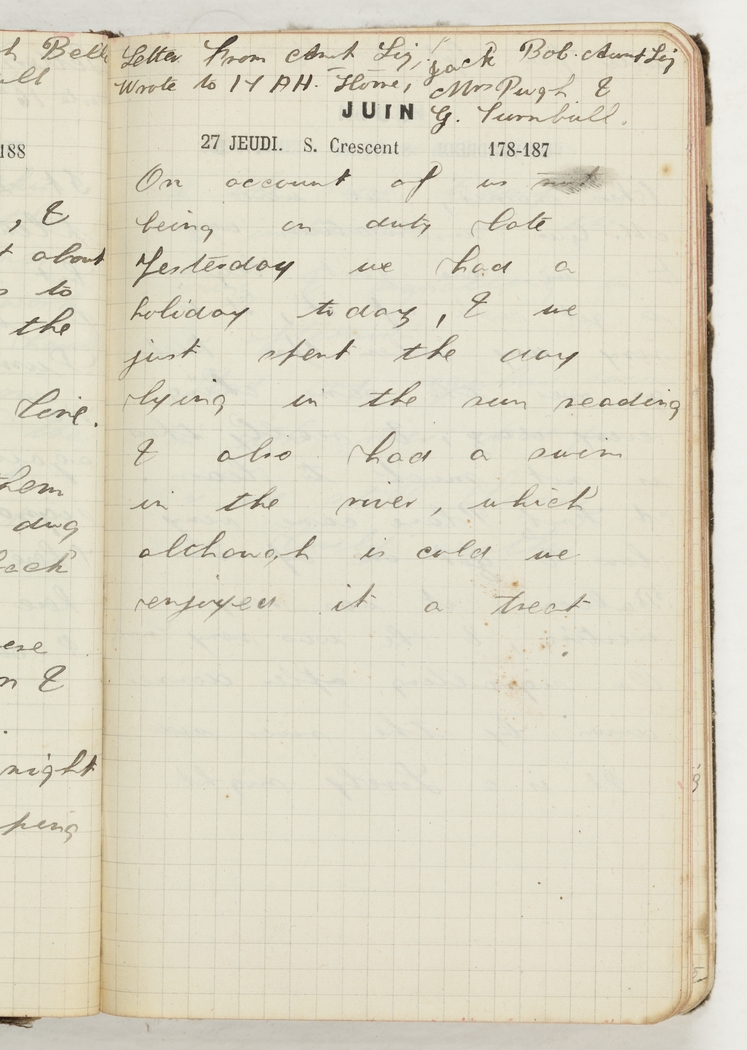 Letter From Aunt Liz, Jack Bob. Aunt Liz
Wrote to 14 A.H. Home, Mrs Pugh &
G. Turnbull.
JUIN
27 JEUDI. S. Crescent 178-187
On account of us
being on duty late
Yesterday we had a
holiday today, & we
just spent the day
lying in the sun reading
I also had a swim
in the river, which
although is cold we
enjoyed it a treat
Bell
188
, &
about
to
the
line.
them
dug
back
&
night